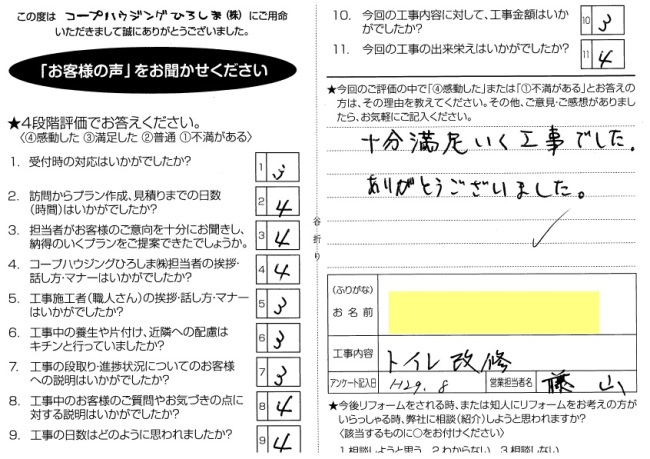 この度は コープハウジングひろしま(株) にご用命
いただきまして誠にありがとうございました。
「お客様の声」をお聞かせください
★4段階評価でお答えください。
〈④感動した ③満足した ②普通 ①不満がある〉
1. 受付時の対応はいかがでしたか？ 1 3
2. 訪問からプラン作成、見積りまでの日数
(時間)はいかがでしたか？ 2 4
3. 担当者がお客様のご意向を十分にお聞きし、
納得のいくプランをご提案できたでしょうか。 3 4
4. コープハウジングひろしま㈱担当者の挨拶・
話し方・マナーはいかがでしたか？ 4 4
5. 工事施工者(職人さん)の挨拶・話し方・マナー
はいかがでしたか？ 5 3
6. 工事中の養生や片付け、近隣への配慮は
キチンと行っていましたか？ 6 3
7. 工事の段取り・進捗状況についてのお客様
への説明はいかがでしたか？ 7 3
8. 工事中のお客様のご質問やお気づきの点に
対する説明はいかがでしたか？ 8 4
9. 工事の日数はどのように思われましたか？ 9 4
谷折り
10. 今回の工事内容に対して、工事金額はいか
がでしたか？ 10 3
11. 今回の工事の出来栄えはいかがでしたか？ 11 4
★今回のご評価の中で「④感動した」または「①不満がある」とお答えの
方は、その理由を教えてください。その他、ご意見・ご感想がありまし
たら、お気軽にご記入ください。
十分満足いく工事でした。
ありがとうございました。
(ふりがな)
お名前
工事内容 トイレ改修
アンケート記入日 H29.8 営業担当者名 藤山
★今後リフォームをされる時、または知人にリフォームをお考えの方が
いらっしゃる時、弊社に相談(紹介)しようと思われますか？
〈該当するものに○をお付けください〉
1.相談しようと思う 2.わからない 3.相談しない